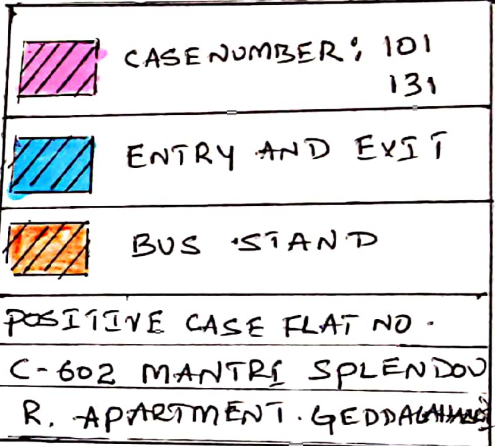 CASE NUMBER: 101
131
ENTRY AND EXIT
BUS STAND
POSITIVE CASE FLAT NO.
C-602 MANTRI SPLENDOU
R. APARTMENT. GEDDALAHALLI